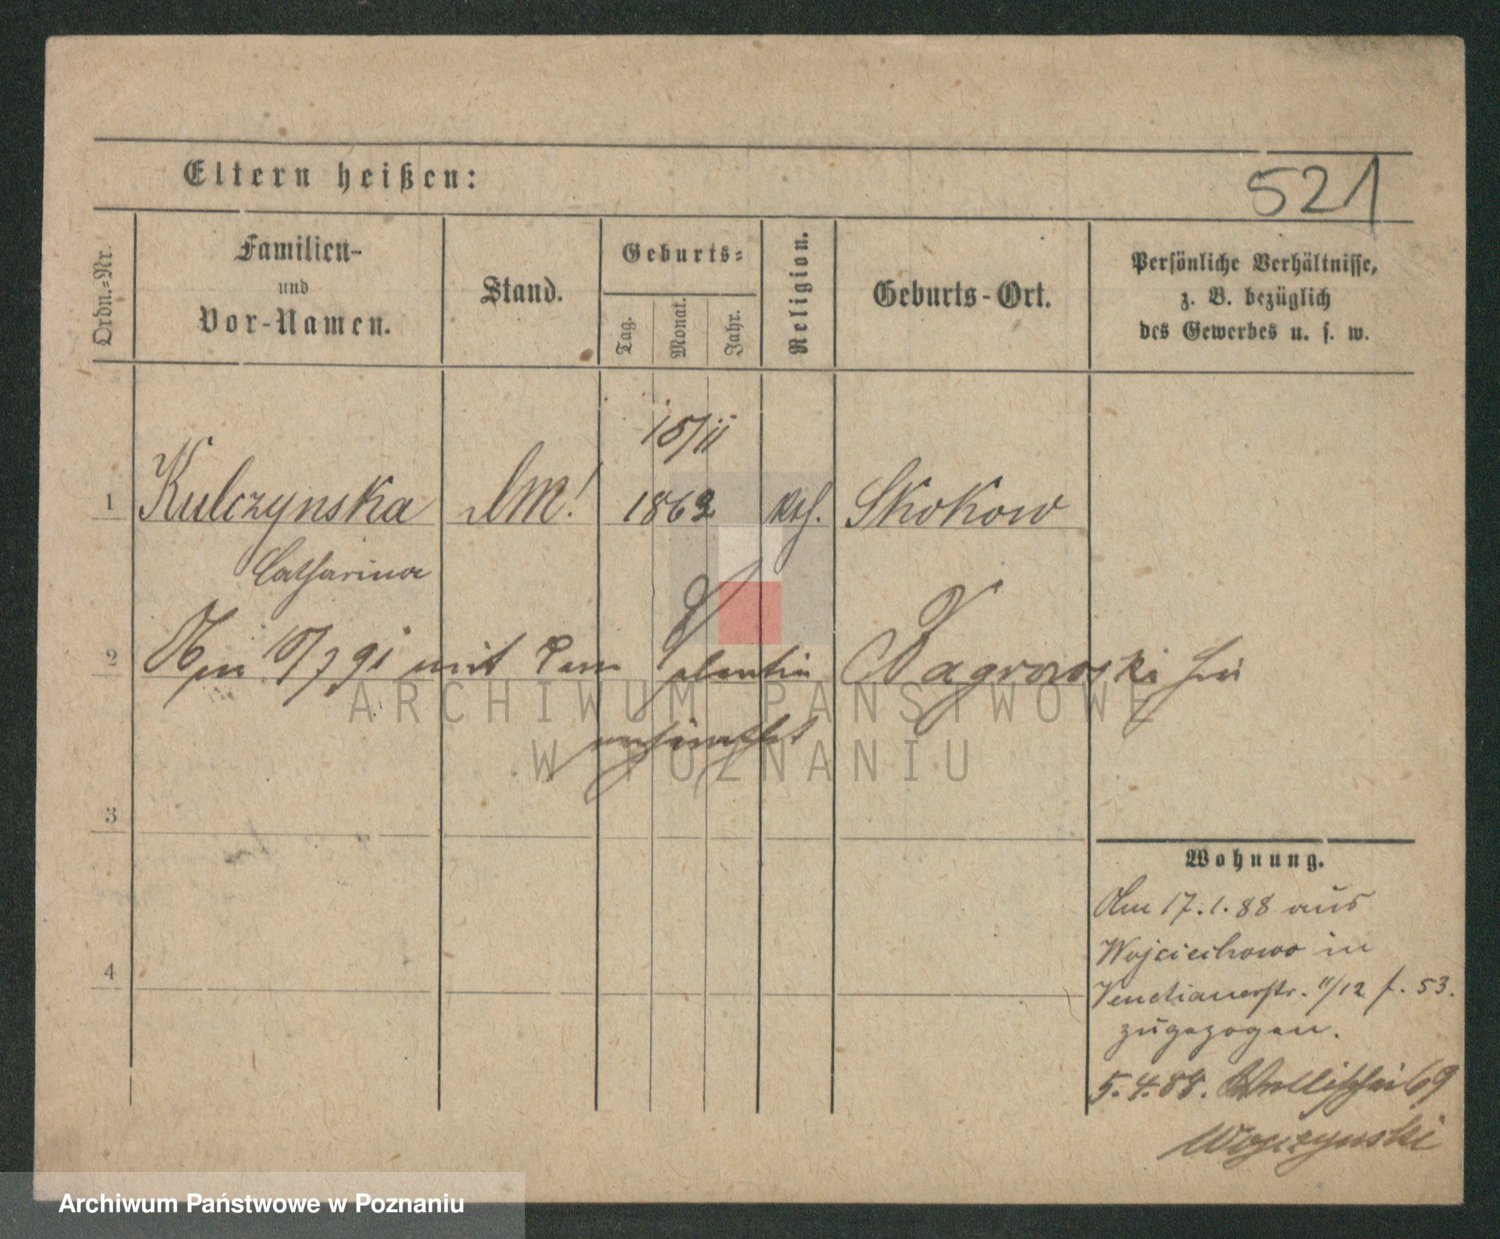 Eltern heißen:
521
Ordn.=Nr.
Familien-
und
Vor-Namen.
Stand.
Geburts=
Tag.
Monat.
Jahr.
Religion.
Geburts-Ort.
Persönliche Verhältnisse,
z. B. bezüglich
des Gewerbes u. s. w.
15/11
1 Kulczynska 1862 kth. Skokow
Catharina
2 mit dem Valentin Vagrowski hier
verheirathet
3
4
Wohnung.
Am 17.1.88 aus
Wojciechowo in
Venetianerstr. 11/12 f. 53.
zugezogen.
5.4.88. Wallischei 69
Woyczynski
ARCHIWUM PAŃSTWOWE
W POZNANIU
Archiwum Państwowe w Poznaniu